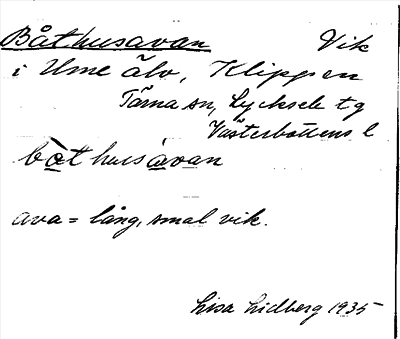 Båthusavan Vik
i Ume älv, Klippen
Tärna sn, Lycksele tg
Västerbottens l
bòthusàvan
ava = lång, smal vik.
Lisa Lidberg 1935